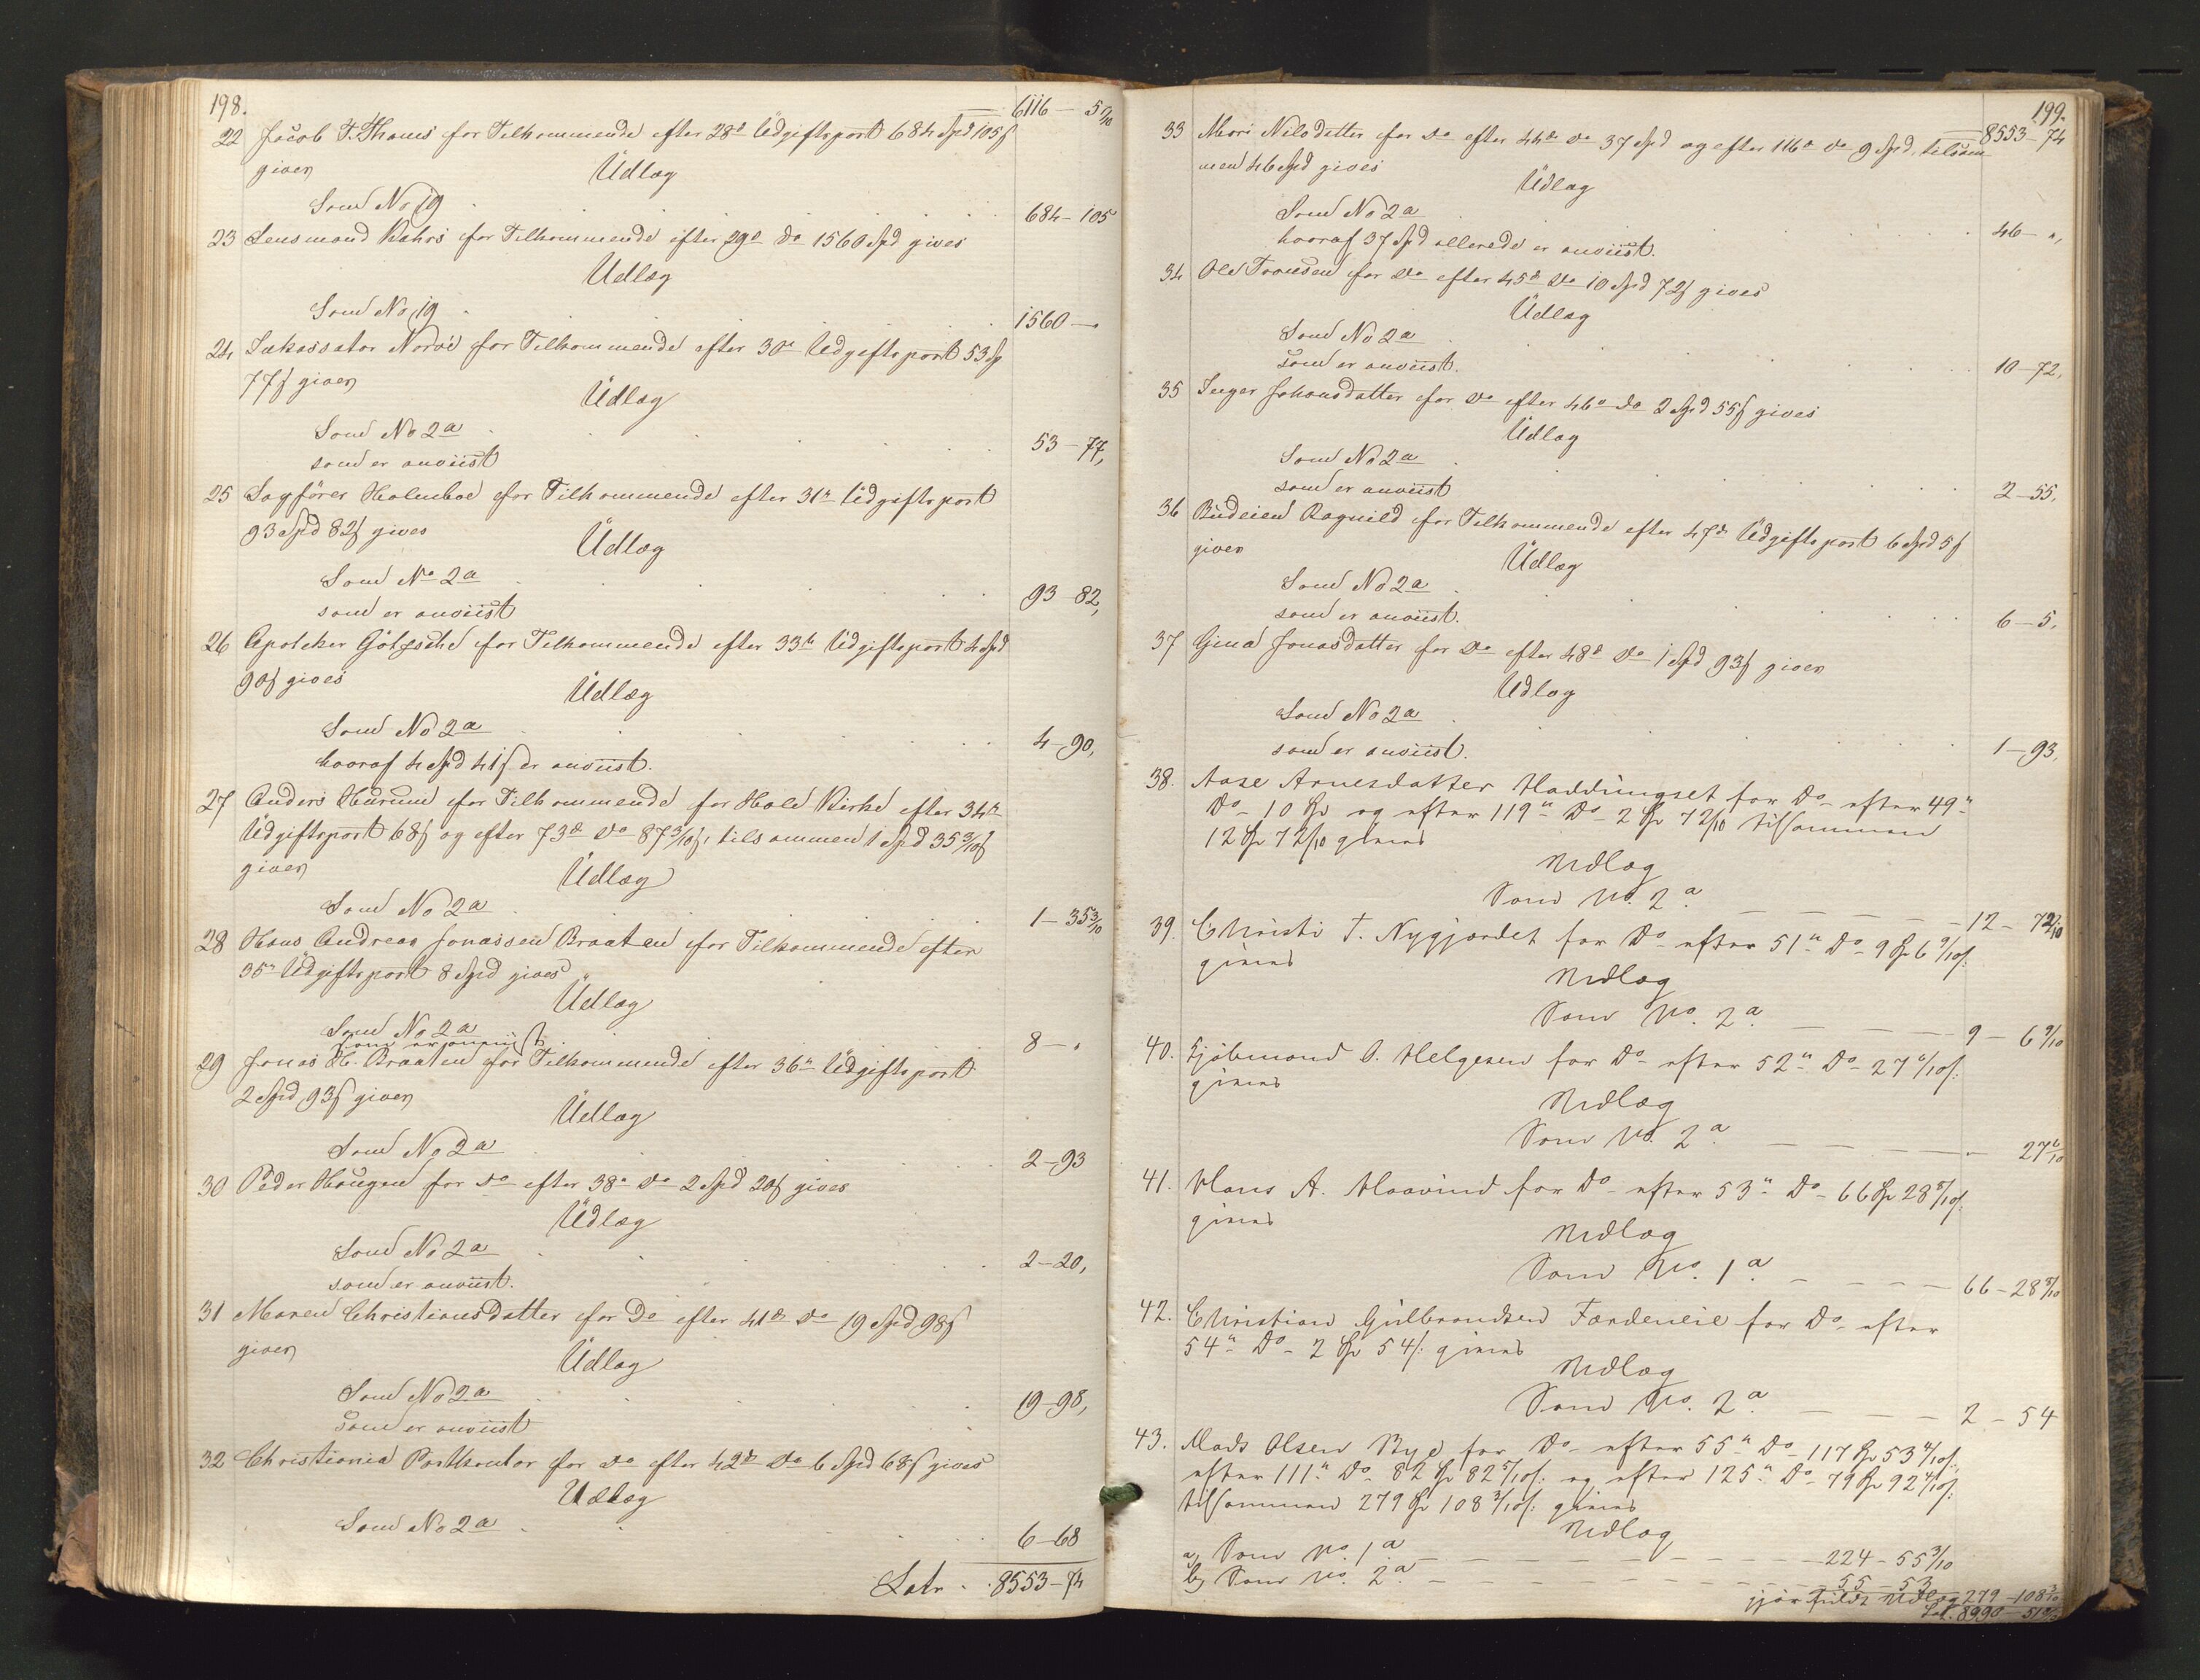 198.
6116 - 5 7/10
22 Jacob T. Thoms for Tilkommende efter 28de Üdgiftspost 684 Spd 105 s
gives
Üdlæg
Som No 19 684 - 105
23 Lensmand Bahrs for Tilkommende efter 29de Do 1560 Spd gives
Üdlæg
Som No 19 1560 -
24 Inkassator for Tilkommende efter 30te Üdgiftspost 53 Sp
77 s gives
Üdlæg
Som No 2a 53 - 77,
som er anviist
25 Sagfører Holmboe for Tilkommende efter 31te Üdgiftspost
93 Spd 82 s gives
Üdlæg
Som No 2a 93 - 82,
som er anviist
26 Apoteker Götzsche for Tilkommende efter 33te Üdgiftspost 4 Spd
90 s gives
Üdlæg
Som No 2a 4 - 90,
hvoraf 4 Spd 41 s er anviist.
27 Anders Hurum for Tilkommende for Hole Kirke efter 34te
Üdgiftspost 68 s og efter 73de Do 87 3/10 s, tilsammen 1 Spd 35 3/10 s
gives
Üdlæg
Som No 2a 1 - 35 3/10
28 Hans Andreas Jonassen Braaten for Tilkommende efter
35te Üdgiftspost 8 Spd gives
Üdlæg
Som No 2a 8 - "
som er anviist.
29 Jonas H. Braaten for Tilkommende efter 36te Üdgiftspost
2 Spd 93 s gives
Üdlæg
Som No 2a 2 - 93
30 Peder Haugen for Do efter 38te Do 2 Spd 20 s gives
Üdlæg
Som No 2a 2 - 20,
som er anviist.
31 Maren Christiansdatter for Do efter 41de Do 19 Spd 98 s
gives
Üdlæg
Som No 2a 19 - 98,
som er anviist
32 Christiania Postkontor for Do efter 42de Do 6 Spd 68 s gives
Udlæg
Som No 2a 6 - 68
Latr. 8553 - 74
199.
8553 - 74
33 Mari Nilsdatter for Do efter 44de Do 37 Spd og efter 116de Do 9 Spd, tilsam
men 46 Spd gives
Üdlæg
Som No 2a 46 - ",
hvoraf 37 Spd allerede er anviist.
34 Ole Tronsen for Do efter 45de Do 10 Spd 72 s gives
Üdlæg
Som No 2a 10 - 72,
som er anviist.
35 Inger Johansdatter for Do efter 46de Do 2 Spd 55 s gives
Üdlæg
Som No 2a 2 - 55,
som er anviist
36 Budeien Ragnild for Tilkommende efter 47de Üdgiftspost 6 Spd 5 s
gives
Üdlæg
Som No 2a 6 - 5,
som er anviist.
37 Gina Jonasdatter for Do efter 48de Do 1 Spd 93 s gives
Udlæg
Som No 2a 1 - 93,
som er anviist.
38. Aase Arnesdatter Haddüngset for Do efter 49de
Do 10 Sp og efter 119de Do 2 Sp 7 2/10 tilsammen
12 Sp 7 2/10 gives
Udlæg
Som No. 2a 12 - 7 2/10
39. Christi T. Nygjordet for Do efter 51de Do 9 Sp 6 9/10 s:
gives
Udlæg
Som No. 2a 9 - 6 9/10
40. O. Helgesen for Do efter 52de Do 27 6/10 s:
gives
Udlæg
Som No. 2a " 27 6/10
41. Hans A. Haavind for Do efter 53de Do 66 Sp 28 8/10 s:
gives
Udlæg
Som No. 1a 66 - 28 8/10
42. Christian Gülbrandsen Færdeneie for Do efter
54de Do 2 Sp 54 s: gives
Udlæg
Som No. 2a 2 - 54
43. Mads Olsen Bye for Do efter 55de Do 117 Sp 53 4/10 s:
efter 111de Do 82 Sp 82 5/10 s: og efter 125de Do 79 Sp 92 4/10 s:
tilsammen 279 Sp 108 3/10 s: gives
Udlæg
a, Som No. 1a 224 - 55 3/10
b, Som No. 2a 55 - 53
gjør fuldt Udlæg 279 - 108 3/10